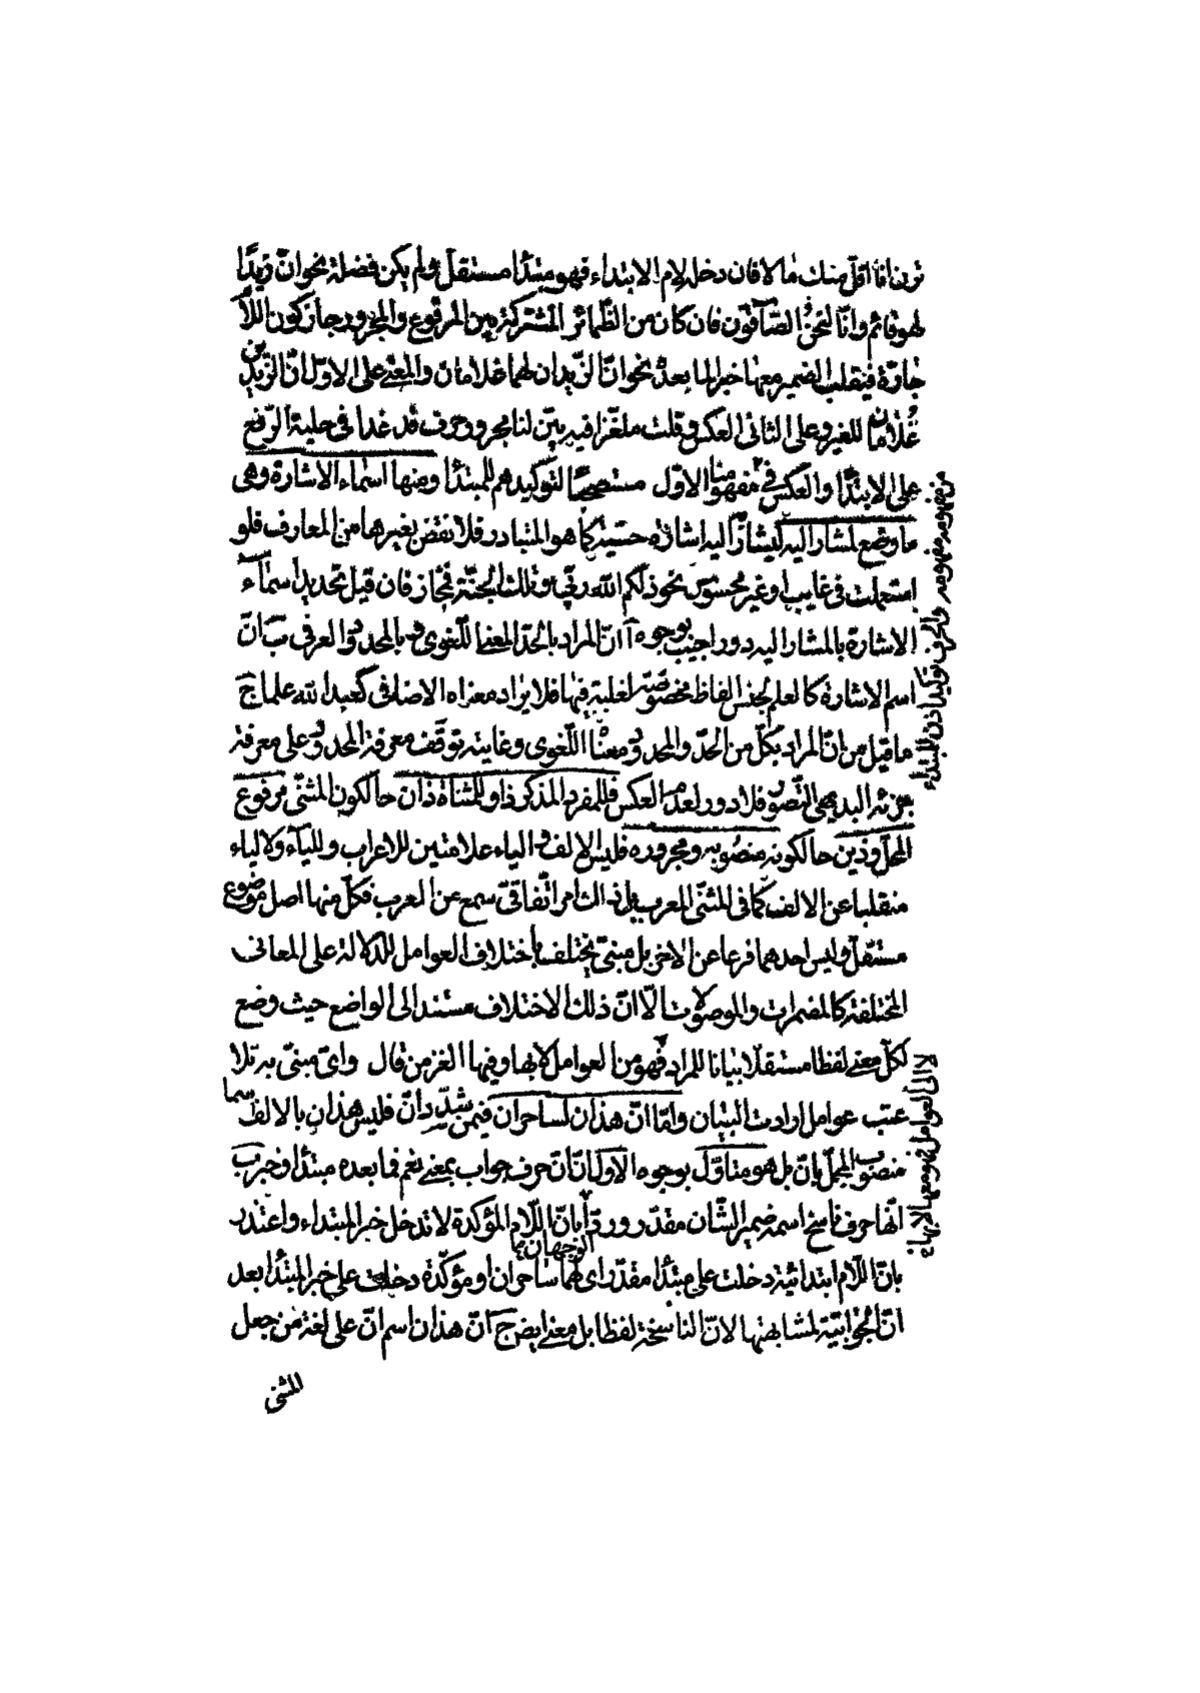 ترن انا اقلّ منك مالا فان دخل لام الابتداء فهو مبتدأ مستقلّ ولم يكن فضلة نحو انّ زيدًا
لهو قائم وانّا لنحن الصّافّون فان كان من الضّمائر المشتركة بين المرفوع والمجرور جاز كون اللّام
جارّة فينقلب الضمير معها خبرا لما بعده نحو انّ الزّيدان لهما غلامان والمعنى على الاوّل انّ الزّيدين
غلامان للغير وعلى الثاني العكس وقلت ملغزا فيه بيّن لنا مجرور حرف قد غدا في حلية الرّفع
على الابتدا والعكس في مفهومنا الاوّل مستصحبًا لتوكيدهم للمبتدأ ومنها اسماء الاشارة وهي
ما وضع لمشار اليه ليشار اليه اشارة حسّيّة كما هو المتبادر فلا نقض بغيرها من المعارف فلو
استعملت في غايب او غير محسوس نحو ذلكم الله ربّي وتلك الجنّة فمجاز فان قيل تحديد اسماء
الاشارة بالمشار اليه دور اجيب بوجوه آ انّ المراد بالحدّ المعنى اللّغوي وبالمحدود العرفي ب انّ
اسم الاشارة كالعلم لجنس الفاظ مخصوصة لغلبته فيها فلا يراد معناه الاضافي كعبد الله علما ج
ما قيل من انّ المراد بكلّ من الحدّ والمحدود معناه اللّغوي وغايته توقّف معرفة المحدود على معرفة
جزئه البديهي التّصوّر فلا دور لعدم العكس فللمفرد المذكر ذا وللمثناة ذان حالكون المثنّى مرفوع
المحلّ وذين حالكونه منصوبه ومجروره فليس الالف والياء علامتين للاعراب ولا الياء
منقلبا عن الالف كما في المثنّى المعرب بل ذاك امر اتّفاقيّ سمع عن العرب فكلّ منها اصل موضوع
مستقلّ وليس احدهما فرعا عن الاخر بل مبنيّ يختلف باختلاف العوامل للدّلالة على المعاني
المختلفة كالمضمرات والموصولات الّا انّ ذلك الاختلاف مستند الى الواضع حيث وضع
لكلّ معنى لفظا مستقلّا بيانا للمراد فهو من العوامل لا بها وفيها الغز من قال وايّ مبنيّ به تلا
عتب عوامل ارادت البيان وامّا انّ هذان لساحران فيمن شدّد انّ فليس هذان بالالف اسما
منصوب المحلّ بانّ بل هو متاوّل بوجوه الاوّل انّ انّ حرف جواب بمعنى نعم فما بعده مبتدأ وخبر ب
انّها حرف ناسخ اسمه ضمير الشّان مقدّر وردّ بانّ اللّام المؤكدة لا تدخل خبر المبتداء واعتذر
الوجهان
بانّ اللّام ابتدائية دخلت على مبتدأ مقدّر اى لهما ساحران او مؤكّدة دخلت على خبر المبتدأ بعد
انّ الجوابيّة لمشابهتها لانّ الناسخة لفظا بل معنى ايض ج انّ هذان اسم انّ على لغة من جعل
المثنى